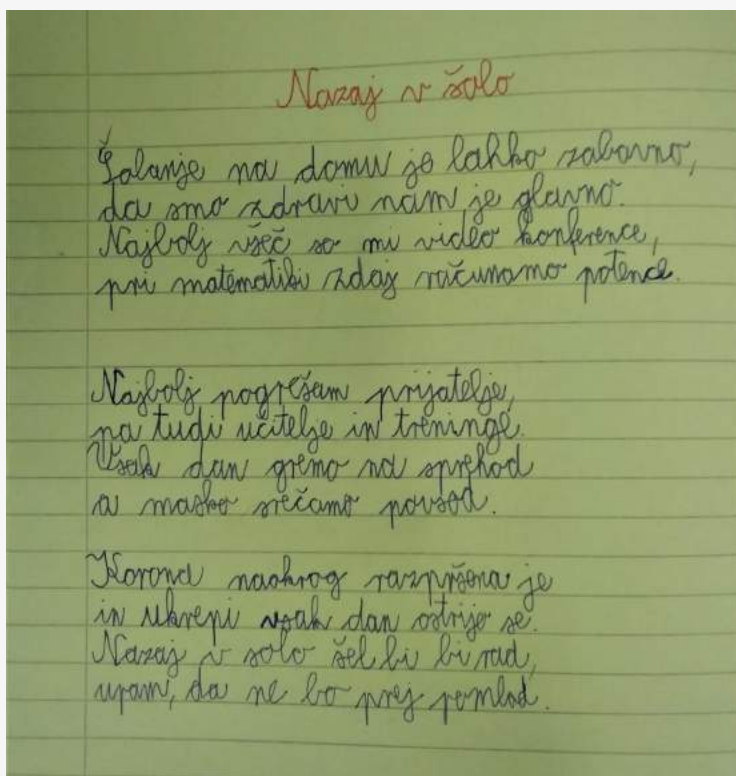 Nazaj v šolo
Šolanje na domu je lahko zabavno,
da smo zdravi nam je glavno.
Najbolj všeč so mi video konference,
pri matematiki zdaj računamo potence.
Najbolj pogrešam prijatelje,
pa tudi učitelje in treninge.
Vsak dan gremo na sprehod
a masko srečamo povsod.
Korona naokrog razpršena je
in ukrepi vsak dan ostrijo se.
Nazaj v solo šel bi bi rad,
upam, da ne bo prej pomlad.